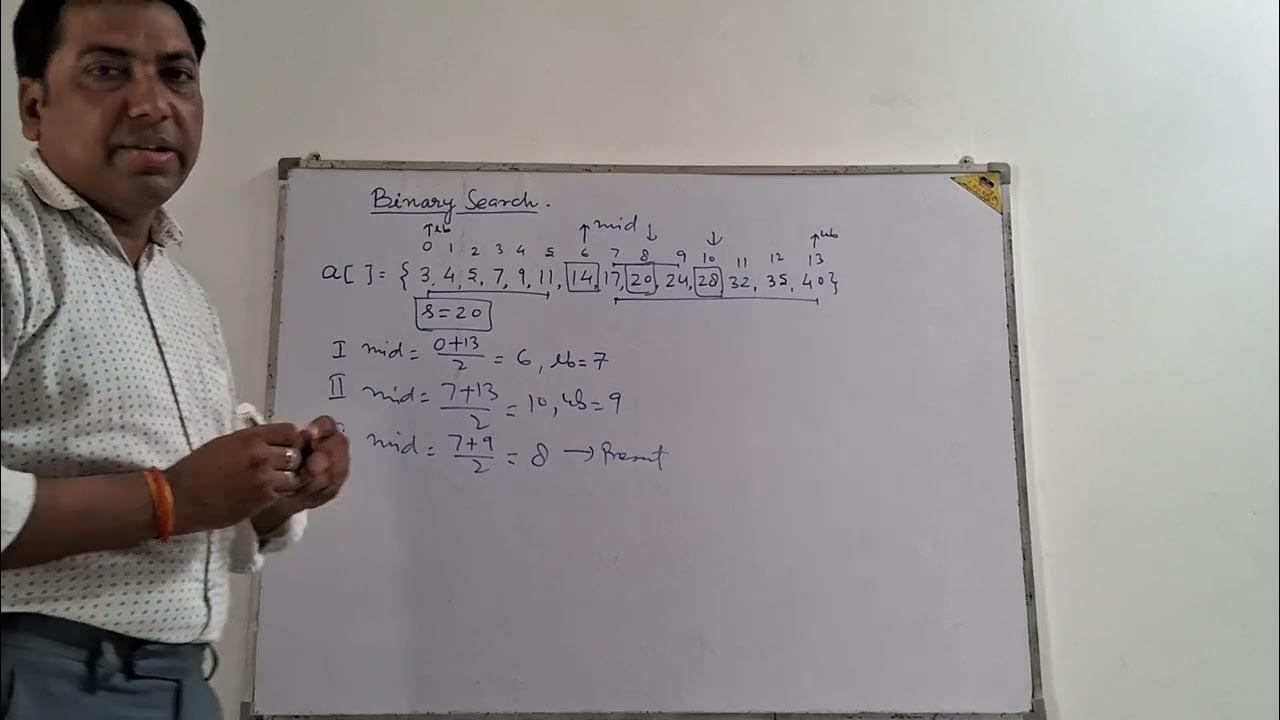 Binary Search.
↑lb ↑mid ↓ ↓ ↑ub
0 1 2 3 4 5 6 7 8 9 10 11 12 13
a[ ] = { 3, 4, 5, 7, 9, 11, 14, 17, 20, 24, 28, 32, 35, 40}
s=20
I mid = 0+13/2 = 6, lb=7
II mid = 7+13/2 = 10, ub=9
mid = 7+9/2 = 8 → Present